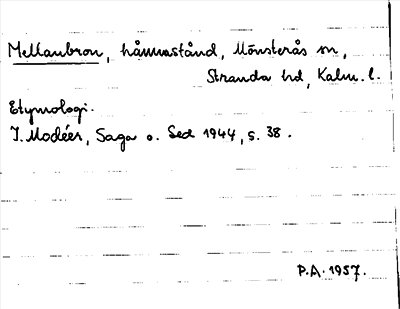 Mellanbron, hamnastånd, Mönsterås sn,
Stranda hd, Kalm. l.
Etymologi.
I. Modéer, Saga o. Sed 1944, s. 38.
P.A. 1957.